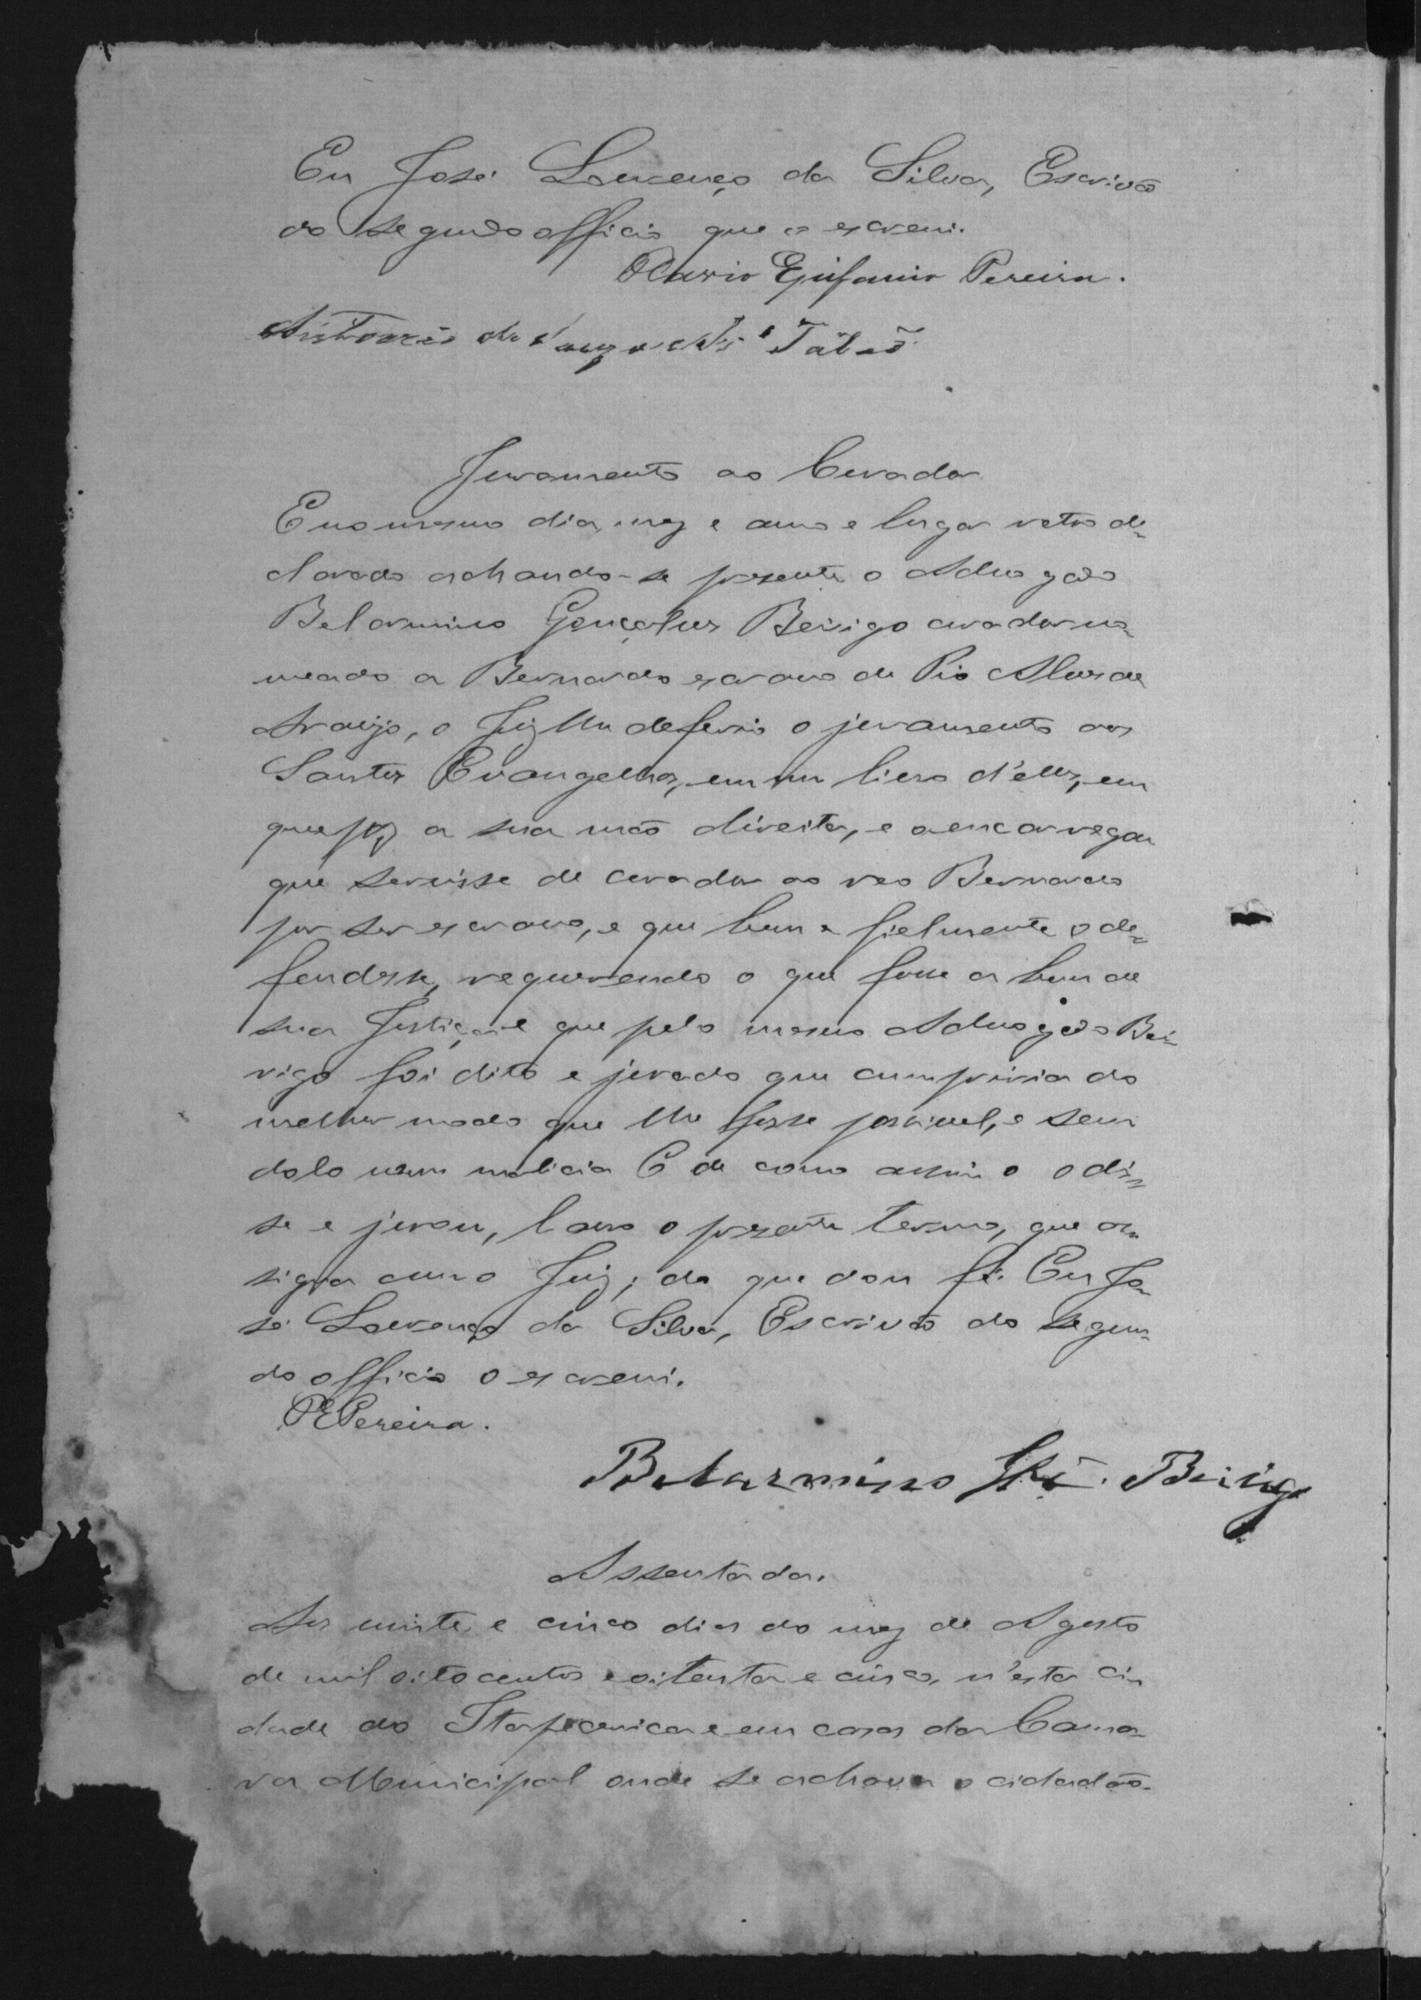 Eu José Lourenço da Silva, Escrivão
do segundo officio que o escrevi.
Olavio Epifanio Pereira.
Antonio de Souza
Juramento ao Curador
E no mesmo dia, mez e anno e lugar retro de-
clarado achando-se presente o Advogado
Belarmino Gonçalves Beirigo curador no-
meado a Bernardo escravo de Pio Alves de
Araujo, o Juiz lhe deferio o juramento aos
Santos Evangelhos, em um livro d'elles, em
que poz a sua mão direita, e o encarregou
que servisse de curador ao reo Bernardo
por ser escravo, e que bem e fielmente o de-
fendesse, requerendo o que fosse a bem de
sua Justiça e que pelo mesmo Advogado Bei-
rigo foi dito e jurado que cumpriria do
melhor modo que lhe fosse possivel, e sem
dolo nem malicia E de como assim o o dis-
se e jurou, lavro o presente termo, que as-
signa com o Juiz; do que dou fé. Eu Jo-
sé Lourenço da Silva, Escrivão do segun-
do officio o escrevi.
PEPereira.
Belarmino Glz. Beirigo
Assentada.
Aos vinte e cinco dias do mez de Agosto
de mil oitocentos e oitenta e cinco, n'esta ci-
dade do Itapecerica e em casa da Cama-
ra Municipal onde se achava o cidadão